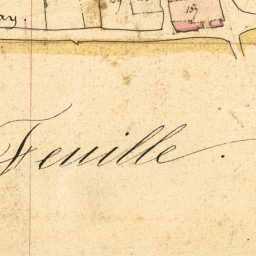 ay.
157
Feuille